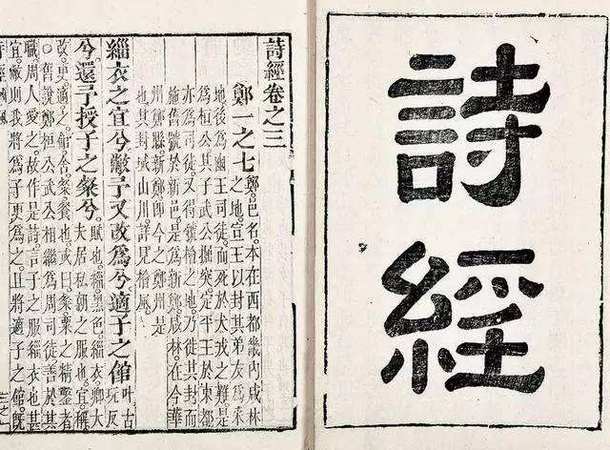 詩
經
詩經卷之三
鄭一之七
鄭。邑名。本在西都畿內咸林
之地。宣王以封其弟友為采
地後為幽王司徒。而死於犬戎之難是
為桓公其子武公掘突定平王於東都
亦為司徒又得虢檜之地。乃徙其封而
施舊號於新邑。是為新鄭咸林。在今華
州鄭縣新鄭即今之鄭州是
也其封域山川詳見檜風
緇衣之宜兮敝予又改為兮適子之館
叶古
玩反
兮還予授子之粲兮。
賦也。緇黑色緇衣卿大
夫居私朝之服也。宜稱
改。更適之館舍。粲餐也。或曰。粲粟之精鑿者
○舊說鄭桓公武公相繼為周司徒善於其
職周人愛之故作是詩。言子之服緇衣也甚
宜。敝則我將為子更為之。且將適子之館。既